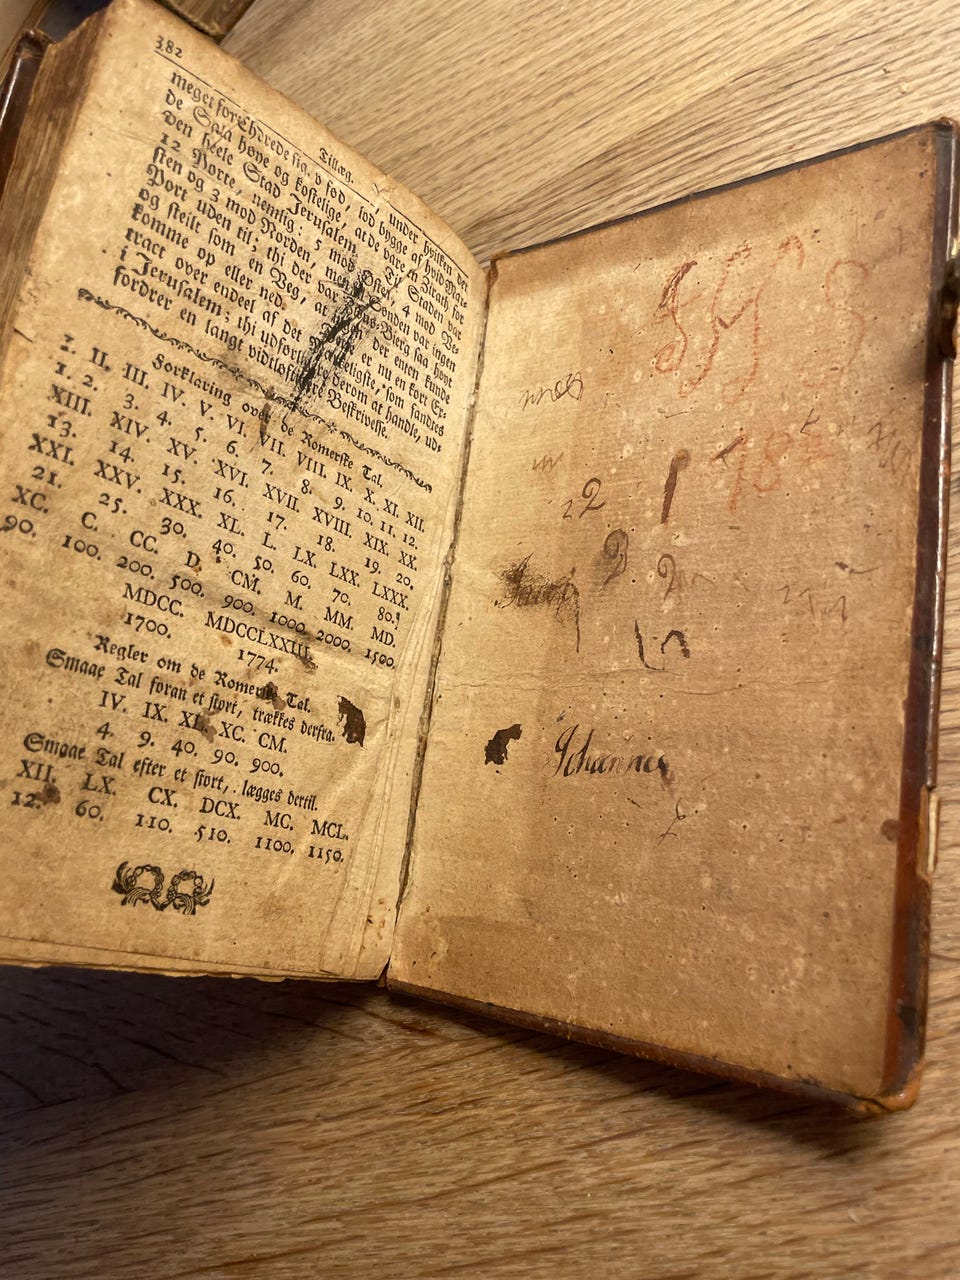 382
Tillæg.
meget forhærede sig. under hvilken der
de Saja høye og kostelige, at de vare en Zirath for
den heele Stad Jerusalem. Til Staden var
12 Porte, nemlig: 5 mod Østen, 4 mod Ve-
sten og 3 mod Norden, men mod Sønden var ingen
Port uden til; thi der var Bierg saa høyt
og steilt som en Veg, at ingen der enten kunde
komme op eller ned. er nu en kort Ex-
tract over endeel af det mærkeligste, som fandtes
i Jerusalem; thi udførligere derom at handle, ud-
fordrer en langt vidtløftigere Beskrivelse.
Forklaring over de Romerske Tal.
I. II. III. IV. V. VI. VII. VIII. IX. X. XI. XII.
1. 2. 3. 4. 5. 6. 7. 8. 9. 10. 11. 12.
XIII. XIV. XV. XVI. XVII. XVIII. XIX. XX.
13. 14. 15. 16. 17. 18. 19. 20.
XXI. XXV. XXX. XL. L. LX. LXX. LXXX.
21. 25. 30. 40. 50. 60. 70. 80.
XC. C. CC. D. CM. M. MM. MD.
90. 100. 200. 500. 900. 1000. 2000. 1500.
MDCC. MDCCLXXIIII.
1700. 1774.
Regler om de Romerske Tal.
Smaae Tal foran et stort, trækkes derfra.
IV. IX. XL. XC. CM.
4. 9. 40. 90. 900.
Smaae Tal efter et stort, lægges dertil.
XII. LX. CX. DCX. MC. MCL.
12. 60. 110. 510. 1100. 1150.
22
Johannes